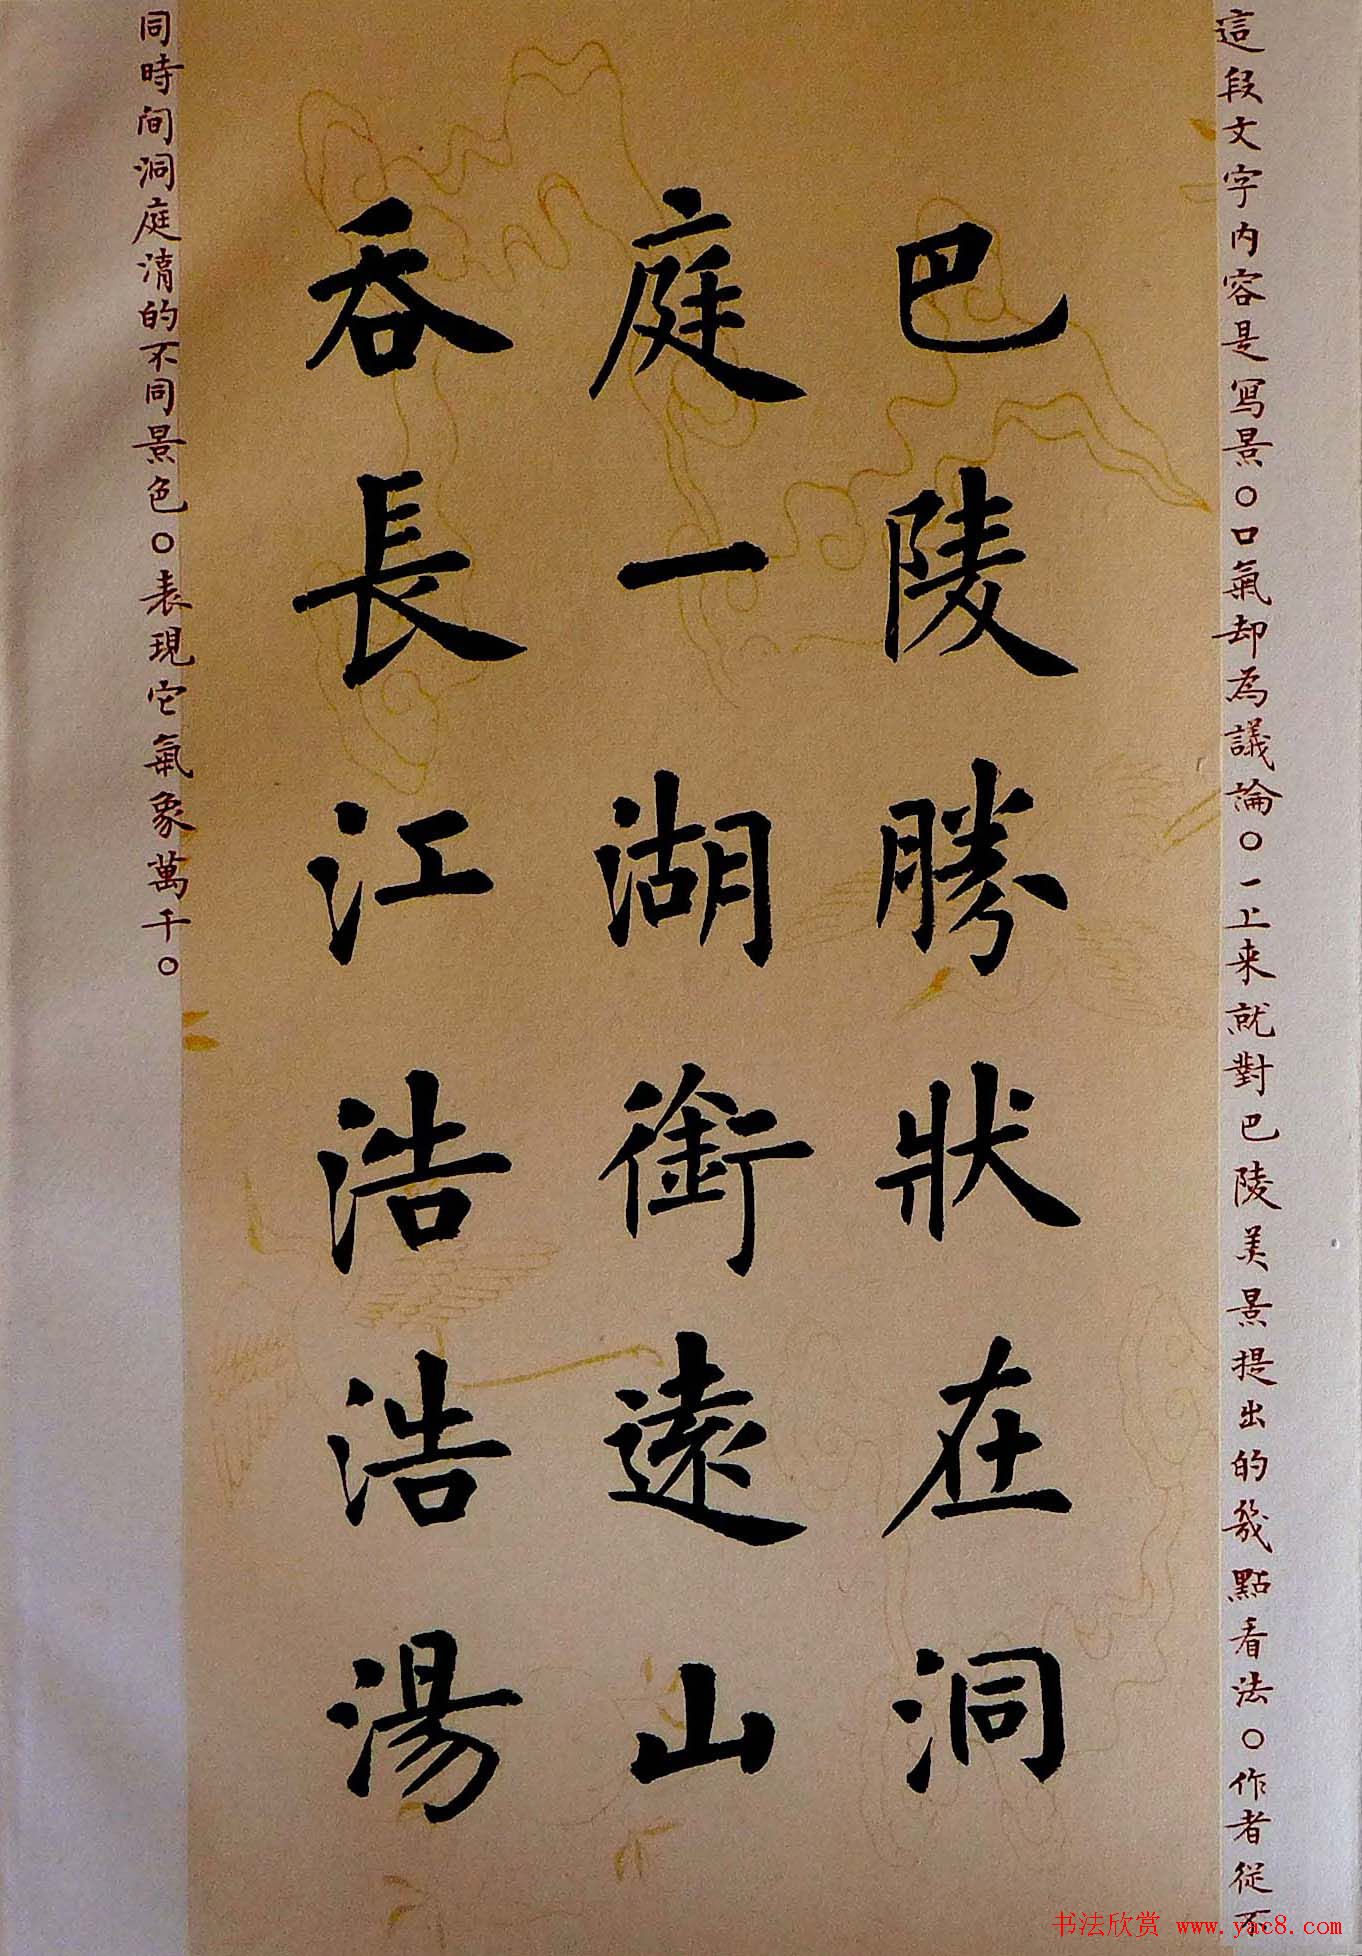 這段文字内容是寫景。口氣却為議論。一上来就對巴陵美景提出的幾點看法。作者從不
巴陵勝狀在洞
庭一湖銜遠山
吞長江浩浩湯
同時间洞庭湖的不同景色。表現它氣象萬千。
书法欣赏 www.yac8.com